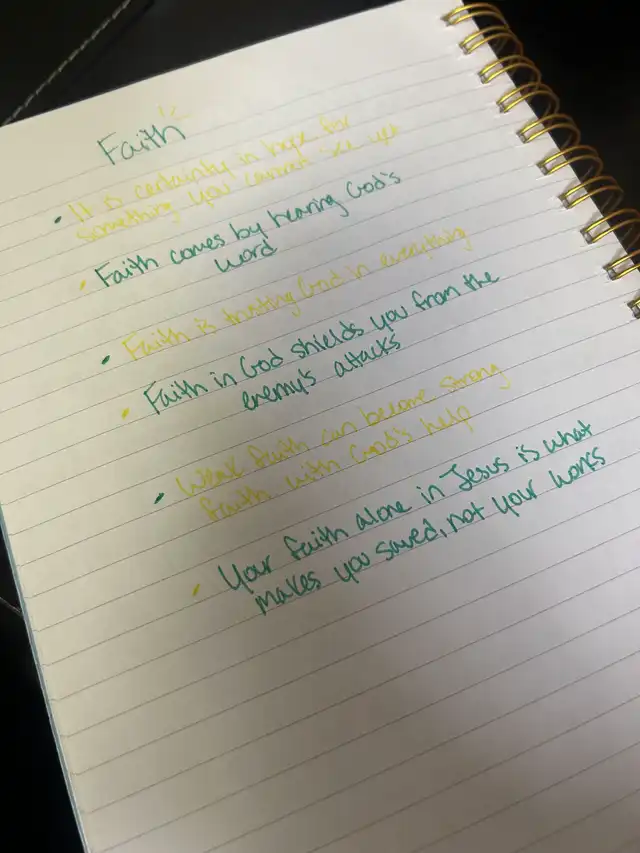 Faith
• It is certainty in hope for
something you cannot see yet
• Faith comes by hearing God's
word
• Faith is trusting God in everything
• Faith in God shields you from the
enemy's attacks
• Weak faith can become strong
faith with God's help
• Your faith alone in Jesus is what
makes you saved, not your works